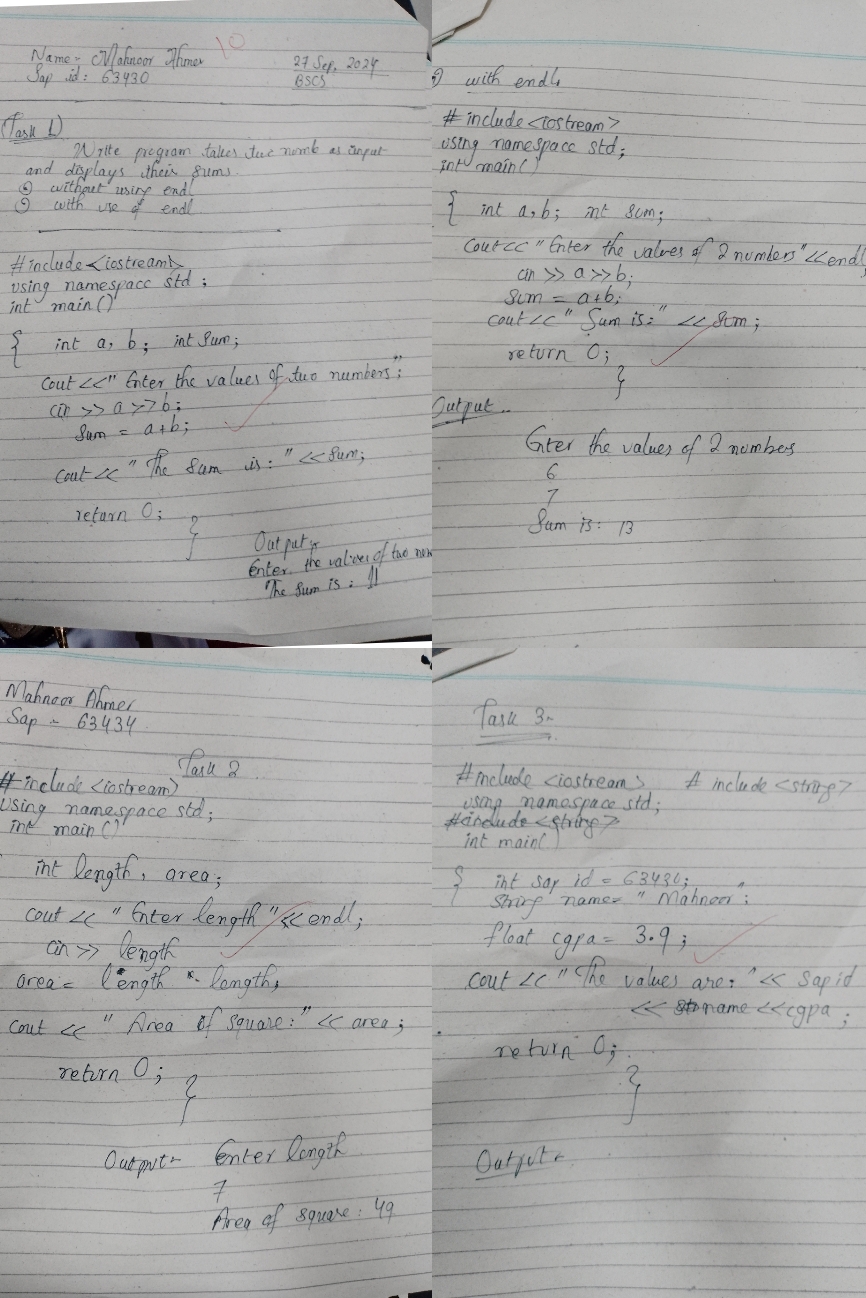 Name - Mahnoor Ahmer
10
27 Sep, 2024
Sap id : 63430
BSCS
(Task 1)
Write program takes two numb as input
and displays their sums.
without using endl
with use of endl
#include <iostream>
using namespace std ;
int main()
{ int a, b ; int Sum;
cout << "Enter the values of two numbers";
cin >> a >> b;
Sum = a+b;
cout << "The Sum is : " << Sum;
return 0;
}
Output :-
Enter the values of two num
The Sum is : 11
with endl
#include <iostream>
using namespace std;
int main()
{ int a, b; int sum;
cout << "Enter the values of 2 numbers" << endl;
cin >> a >> b;
Sum = a+b;
cout << " Sum is: " << Sum;
return 0;
}
Output :-
Enter the values of 2 numbers
6
7
Sum is : 13
Mahnoor Ahmer
Sap - 63434
Task 2
#include <iostream>
using namespace std;
int main()
int length, area;
cout << "Enter length" << endl;
cin >> length
area = length * length;
cout << " Area of square: " << area;
return 0;
}
Output :- Enter length
7
Area of square : 49
Task 3:-
#include <iostream> # include <string>
using namespace std;
#include <string>
int main()
{ int sap id = 63430;
string name = " Mahnoor";
float cgpa = 3.9;
cout << "The values are: " << sap id
<< name << cgpa ;
return 0;
}
Output :-